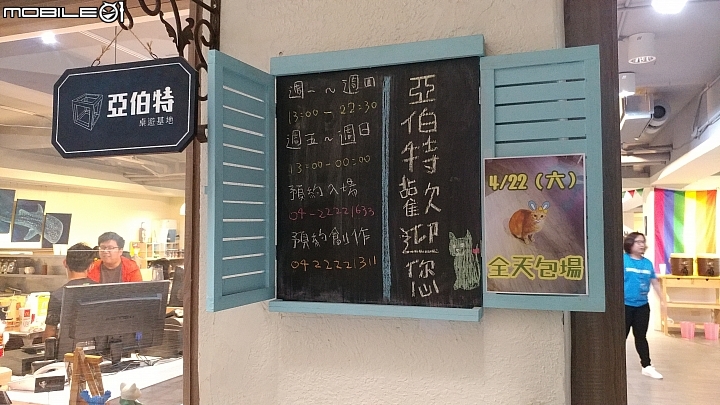 MOBILE01
亞伯特
桌遊基地
週一～週四
13:00-22:30
週五～週日
13:00-00:00
預約入場
04-22221633
預約創作
0422221311
亞伯特歡迎您
4/22（六）
全天包場